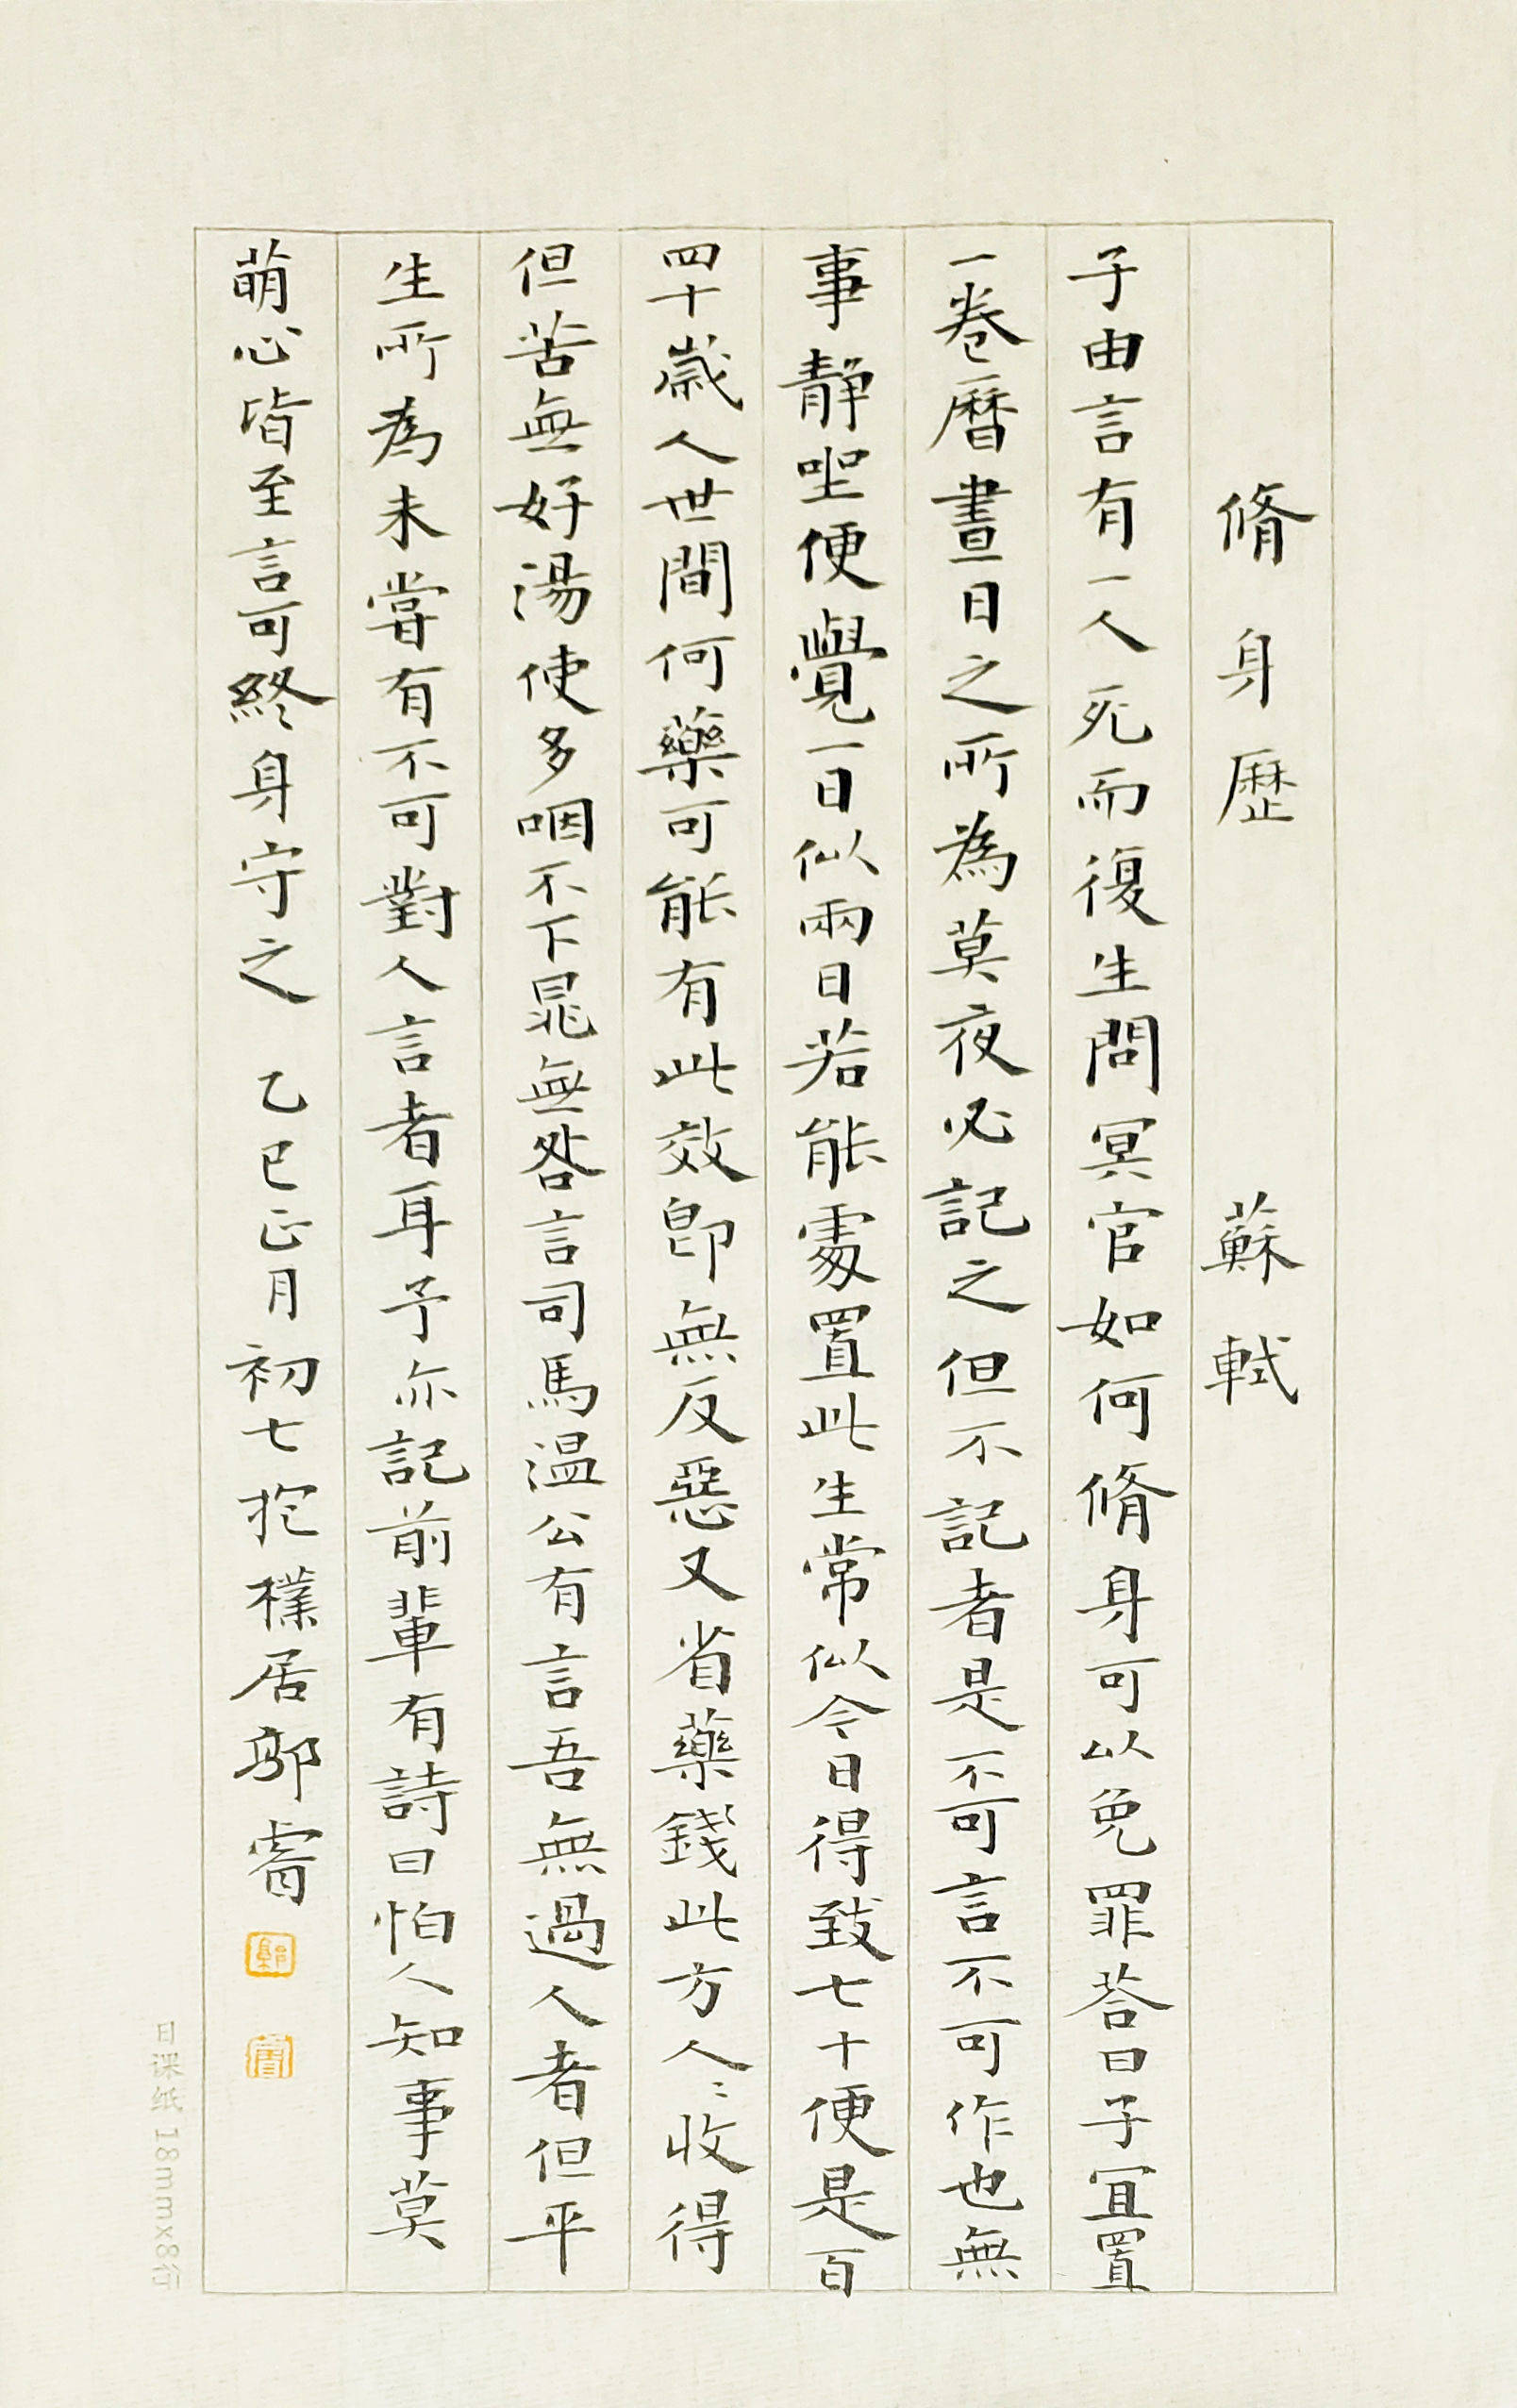 脩身歷 蘇軾
子由言有一人死而復生問冥官如何脩身可以免罪荅曰子宜置
一卷曆晝日之所為莫夜必記之但不記者是不可言不可作也無
事静坐便覺一日似兩日若能處置此生常似今日得致七十便是百
四十歲人世間何藥可能有此效即無反惡又省藥錢此方人〻收得
但苦無好湯使多咽不下晁無咎言司馬温公有言吾無過人者但平
生所為未嘗有不可對人言者耳予亦記前輩有詩曰怕人知事莫
萌心皆至言可終身守之 乙巳正月初七抱樸居鄔睿
日课纸 18mmx8行